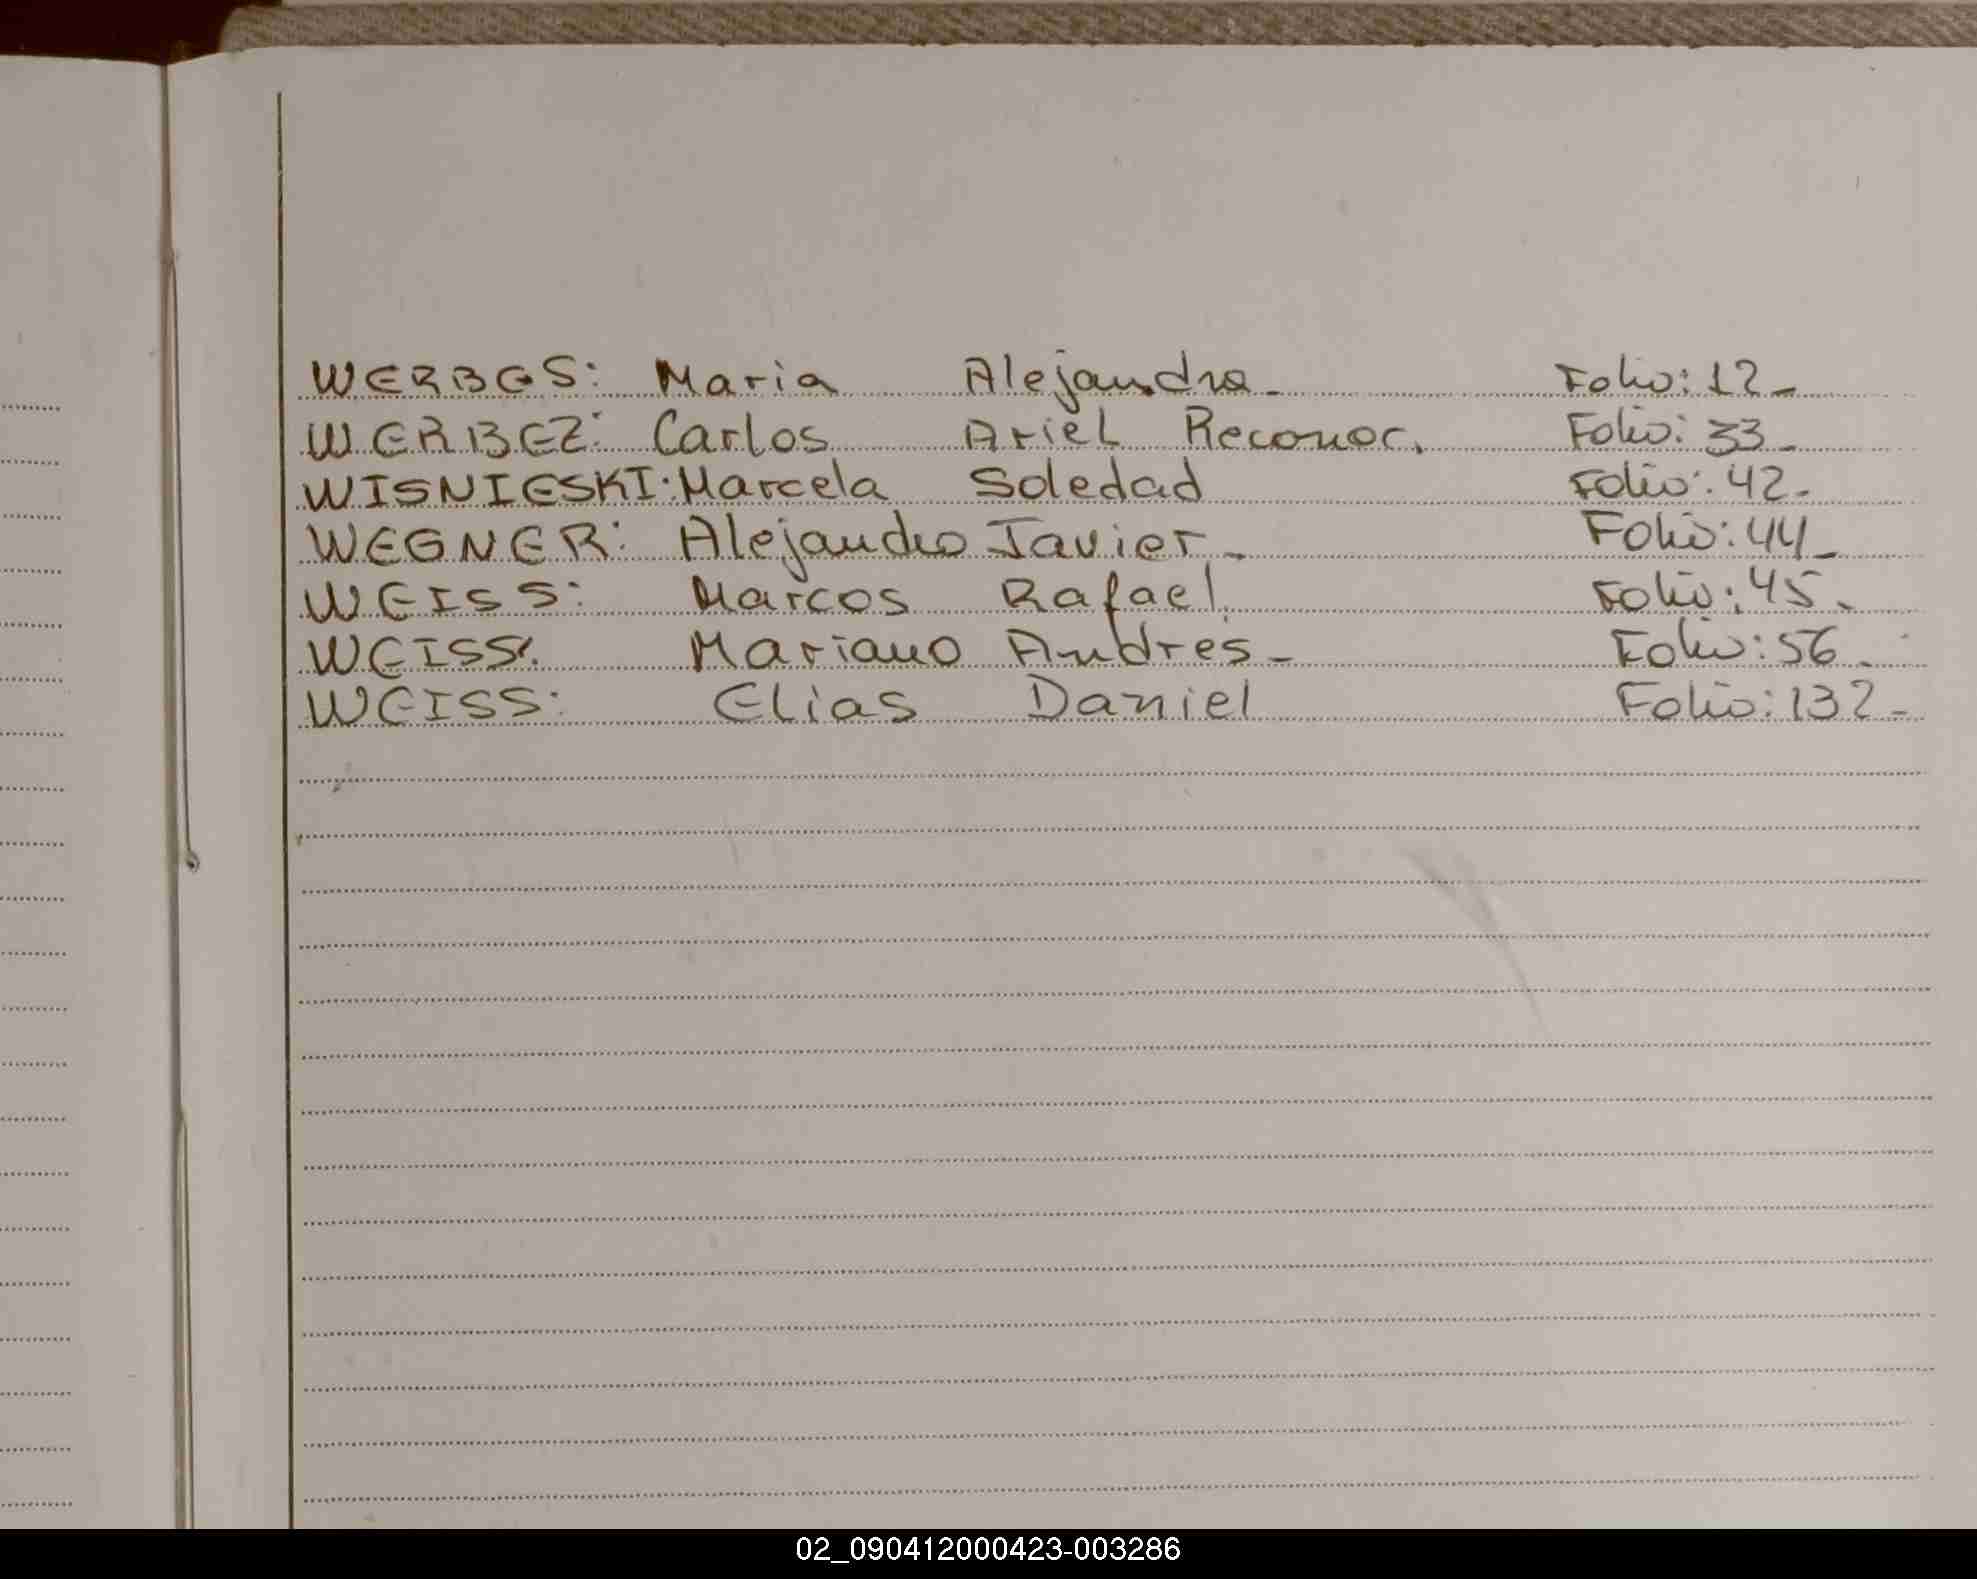 WERBES: Maria Alejandra- Folio: 12-
WERBEZ: Carlos Ariel Reconoc. Folio: 33-
WISNIESKI: Marcela Soledad Folio: 42-
WEGNER: Alejandro Javier- Folio: 44-
WEISS: Marcos Rafael. Folio: 45.
WEISS: Mariano Andres- Folio: 56-
WEISS: Elias Daniel Folio: 132-
02_090412000423-003286